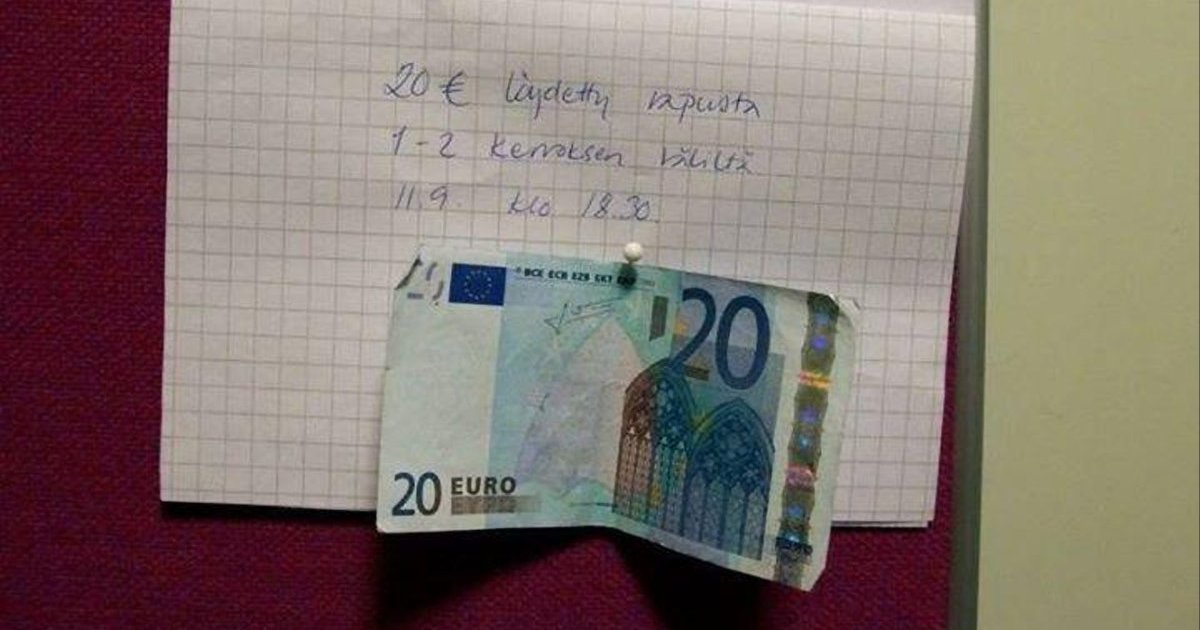 20 € löydetty rapusta
1-2 kerroksen väliltä
11.9. klo 18.30.
BCE ECB EZB EKT EKP
20
20 EURO
ΕΥΡΩ